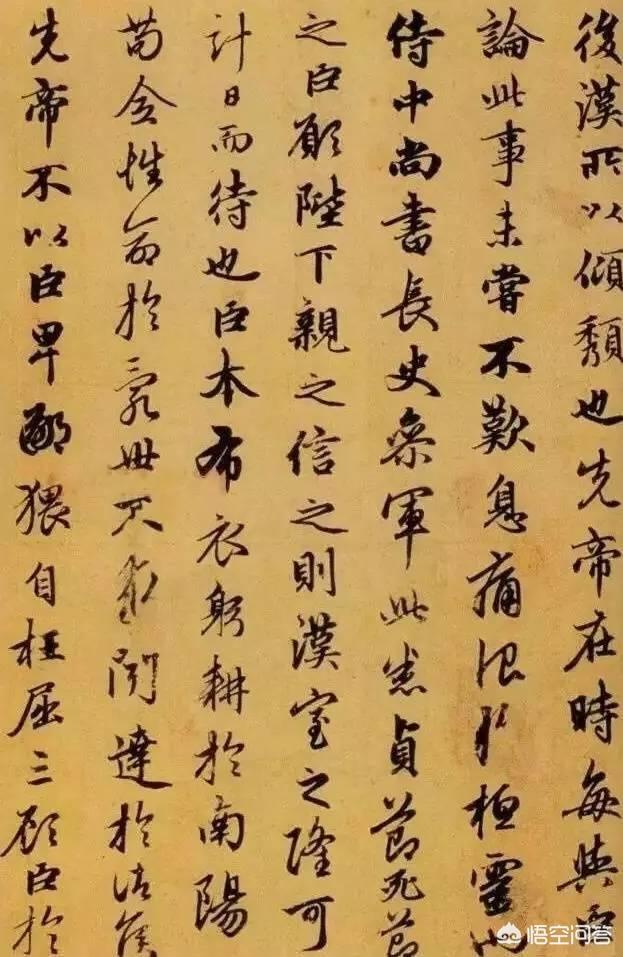 後漢所以傾頹也先帝在時每與臣
論此事未嘗不歎息痛恨於桓靈也
侍中尚書長史參軍此悉貞節死節
之臣願陛下親之信之則漢室之隆可
計日而待也臣本布衣躬耕於南陽
苟全性命於亂世不求聞達於諸侯
先帝不以臣卑鄙猥自枉屈三顧臣於
悟空问答